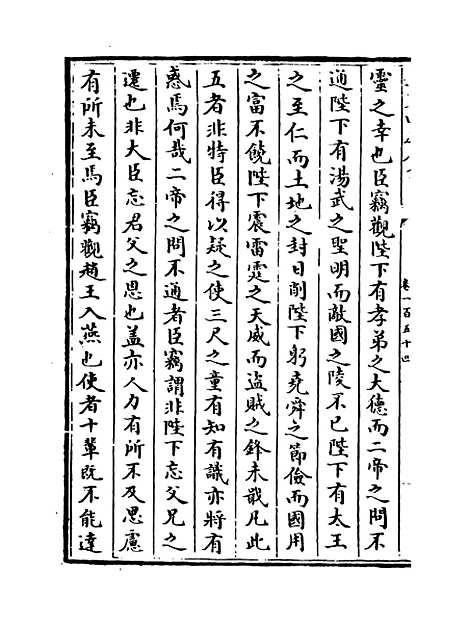 靈之幸也臣竊觀陛下有孝弟之大德而二帝之問不
通陛下有湯武之聖明而敵國之陵不已陛下有太王
之至仁而土地之封日削陛下躬堯舜之節儉而國用
之富不饒陛下震雷霆之天威而盗賊之鋒未戢凡此
五者非特臣得以疑之使三尺之童有知有識亦將有
惑焉何哉二帝之問不通者臣竊謂非陛下忘父兄之
遷也非大臣忘君父之恩也盖亦人力有所不及思慮
有所未至焉臣竊觀趙王入燕也使者十輩既不能達
卷一百五十四